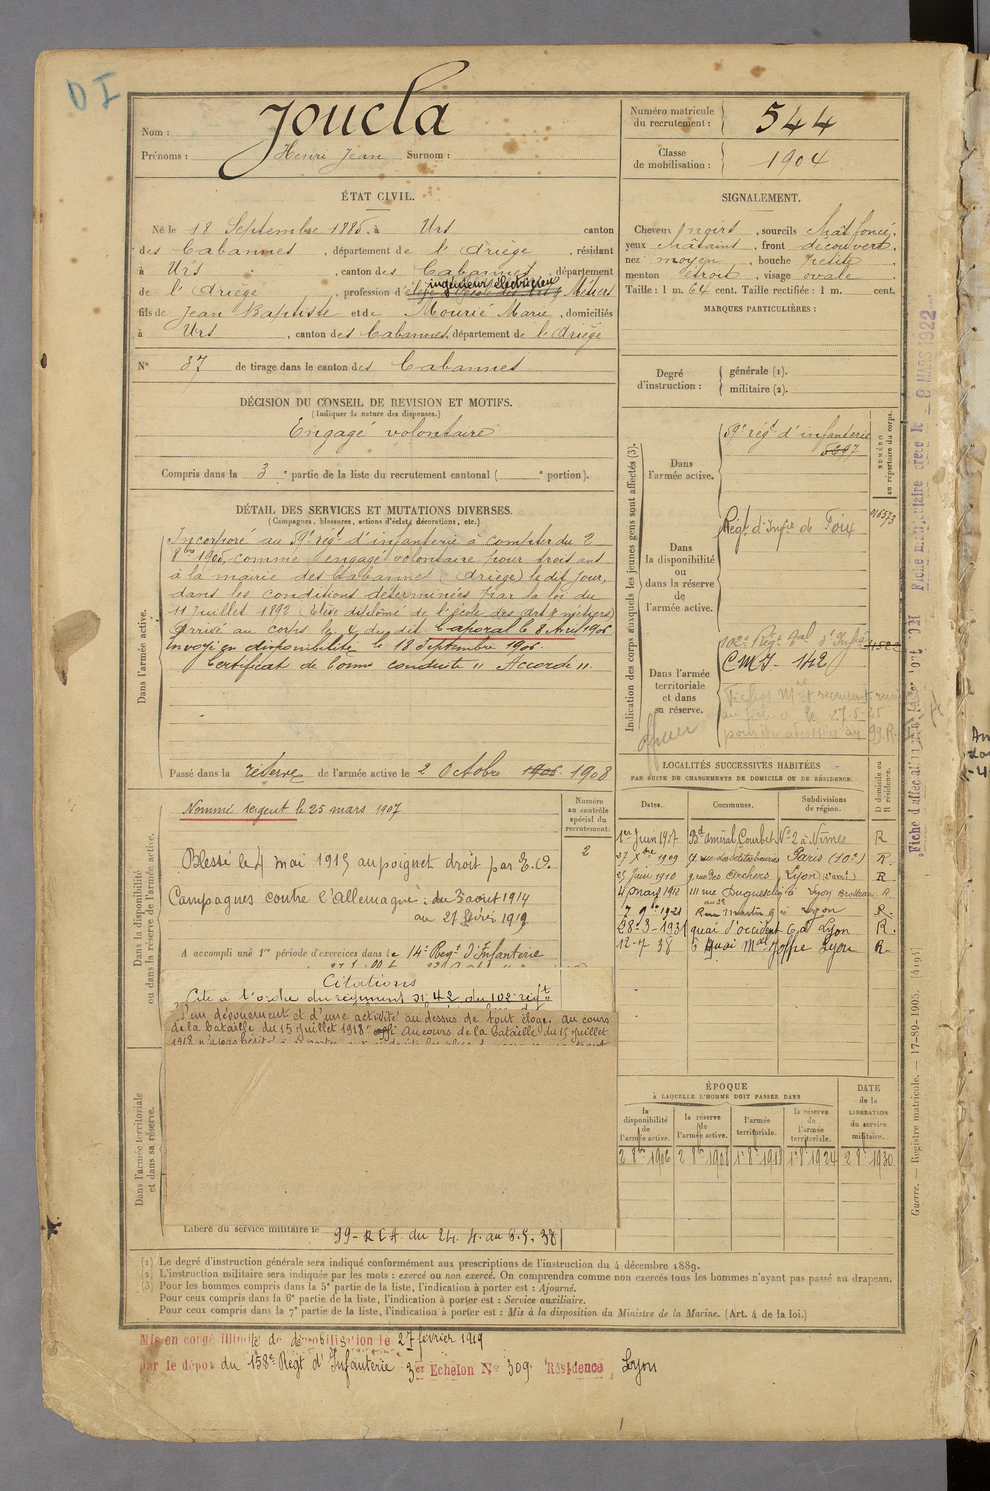 D I
Nom : Joucla
Prénoms : Henri Jean Surnom :
Numéro matricule du recrutement : 544
Classe de mobilisation : 1904
ÉTAT CIVIL.
Né le 18 Septembre 1885, à Urs canton
des Cabannes, département de l'Ariège, résidant
à Urs, canton des Cabannes, département
de l'Ariège, profession d' ingénieur électricien Métiers
fils de Jean Baptiste et de Mourié Marie, domiciliés
à Urs, canton des Cabannes, département de l'Ariège
N° 37 de tirage dans le canton des Cabannes
SIGNALEMENT.
Cheveux noirs, sourcils chât foncé,
yeux châtains, front découvert,
nez moyen, bouche petite,
menton étroit, visage ovale
Taille : 1 m. 64 cent. Taille rectifiée : 1 m. cent.
MARQUES PARTICULIÈRES :
Degré d'instruction :
générale (1).
militaire (2).
DÉCISION DU CONSEIL DE REVISION ET MOTIFS.
(Indiquer la nature des dispenses.)
Engagé volontaire
Compris dans la 3e partie de la liste du recrutement cantonal ( e portion).
DÉTAIL DES SERVICES ET MUTATIONS DIVERSES.
(Campagnes, blessures, actions d'éclat, décorations, etc.)
Dans l'armée active.
Incorporé au 59e rég. d'infanterie à compter du 2
8bre 1905, comme engagé volontaire pour trois ans
à la mairie des Cabannes (Ariège) le dit jour,
dans les conditions déterminées par la loi du
11 Juillet 1892 (Elève diplômé de l'école des art & métiers)
Arrivé au corps le dit Caporal le 8 Avril 1906
Envoyé en disponibilité le 18 Septembre 1906.
Certificat de bonne conduite "Accordé".
Passé dans la réserve de l'armée active le 2 Octobre 1906 1908
Indication des corps auxquels les jeunes gens sont affectés (3).
NUMÉRO au répertoire du corps.
Dans l'armée active.
59e régt d'infanterie
5297
Dans la disponibilité ou dans la réserve de l'armée active.
Régt d'Infie de Foix
016573
Dans l'armée territoriale et dans sa réserve.
102e Régt d'Infie
CMI - 142
LOCALITÉS SUCCESSIVES HABITÉES
PAR SUITE DE CHANGEMENTS DE DOMICILE OU DE RÉSIDENCE.
Dates. Communes. Subdivisions de région. D domicile ou R résidence.
1er Juin 1907 Bd Amiral Courbet No 2 à Nîmes R
27 Xbre 1909 Paris (10e) R.
25 Juin 1910 9, rue des Archers Lyon R
4 Mars 1912 111 rue Duguesclin à Lyon Brotteaux R
7 9bre 1921 Rue Martin 9 à Lyon R.
28-3-1931 quai d'occident 6 à Lyon R.
12-7 38 6 Quai Mal Joffre Lyon R
Dans la disponibilité ou dans la réserve de l'armée active.
Numéro au contrôle spécial du recrutement.
2
Nommé sergent le 25 mars 1907
Blessé le 4 mai 1915 au poignet droit par E.O.
Campagnes contre l'Allemagne : du 3 août 1914
au 27 février 1919
A accompli une 1re période d'exercices dans le 14e Régt d'Infanterie
Citations
Cité à l'ordre du régiment N° 42 du 102e rigt
D'un dévouement et d'une activité au dessus de tout éloge. au cours
de la bataille du 15 Juillet 1918 Au cours de la bataille du 15 Juillet
Dans l'armée territoriale et dans sa réserve.
Libéré du service militaire le 99- RCA du 24. 4. au 6.5. 38
ÉPOQUE
À LAQUELLE L'HOMME DOIT PASSER DANS
la disponibilité de l'armée active. la réserve de l'armée active. l'armée territoriale. la réserve de l'armée territoriale.
DATE de la LIBÉRATION du service militaire.
2 8bre 1906 2 8bre 1908 1er 8bre 1918 1er 8bre 1924 2 8bre 1930
(1) Le degré d'instruction générale sera indiqué conformément aux prescriptions de l'instruction du 4 décembre 1889.
(2) L'instruction militaire sera indiquée par les mots : exercé ou non exercé. On comprendra comme non exercés tous les hommes n'ayant pas passé au drapeau.
(3) Pour les hommes compris dans la 5e partie de la liste, l'indication à porter est : Ajourné.
Pour ceux compris dans la 6e partie de la liste, l'indication à porter est : Service auxiliaire.
Pour ceux compris dans la 7e partie de la liste, l'indication à porter est : Mis à la disposition du Ministre de la Marine. (Art. 4 de la loi.)
Mis en congé illimité de démobilisation le 27 février 1919
par le dépôt du 158e Régt d'Infanterie 3er Echelon N° 309 Résidence, Lyon
Guerre. — Registre matricule. — 17-89-1905. [419]
8 MARS 1922